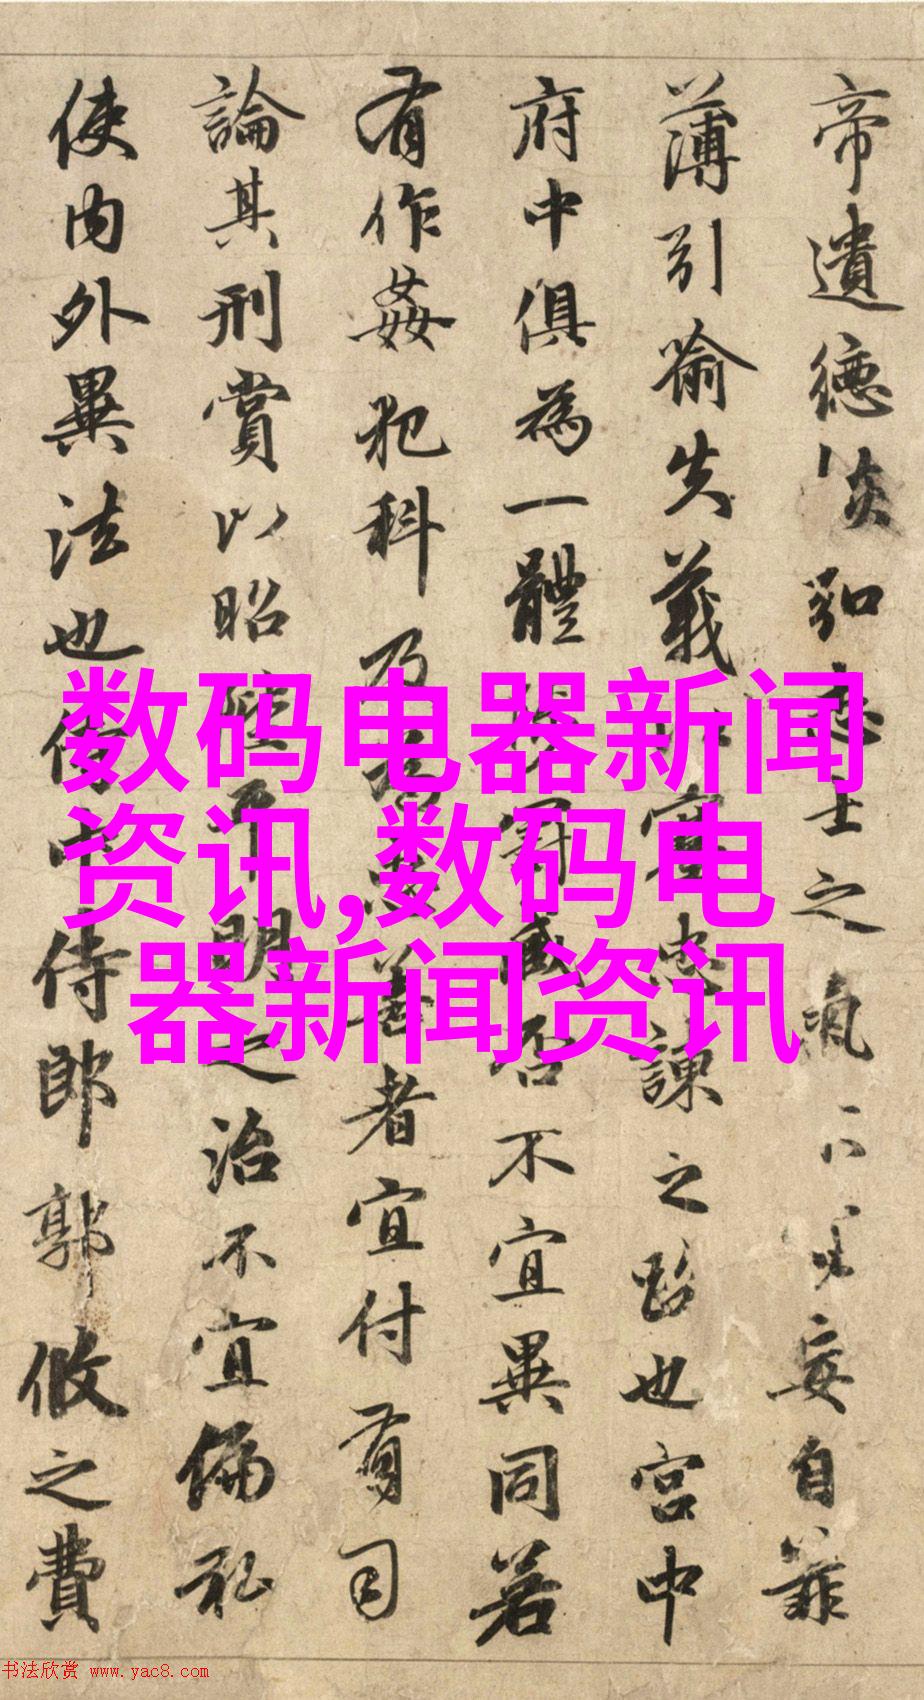 帝遺德恢弘志士之氣不宜妄自菲
薄引喻失義以塞忠諫之路也宮中
府中俱為一體陟罰臧否不宜異同若
有作姦犯科及為忠善者宜付有司
論其刑賞以昭陛平明之治不宜偏私
使內外異法也侍中侍郎郭攸之費
数码电器新闻
资讯,数码电
器新闻资讯
书法欣赏 www.yac8.com